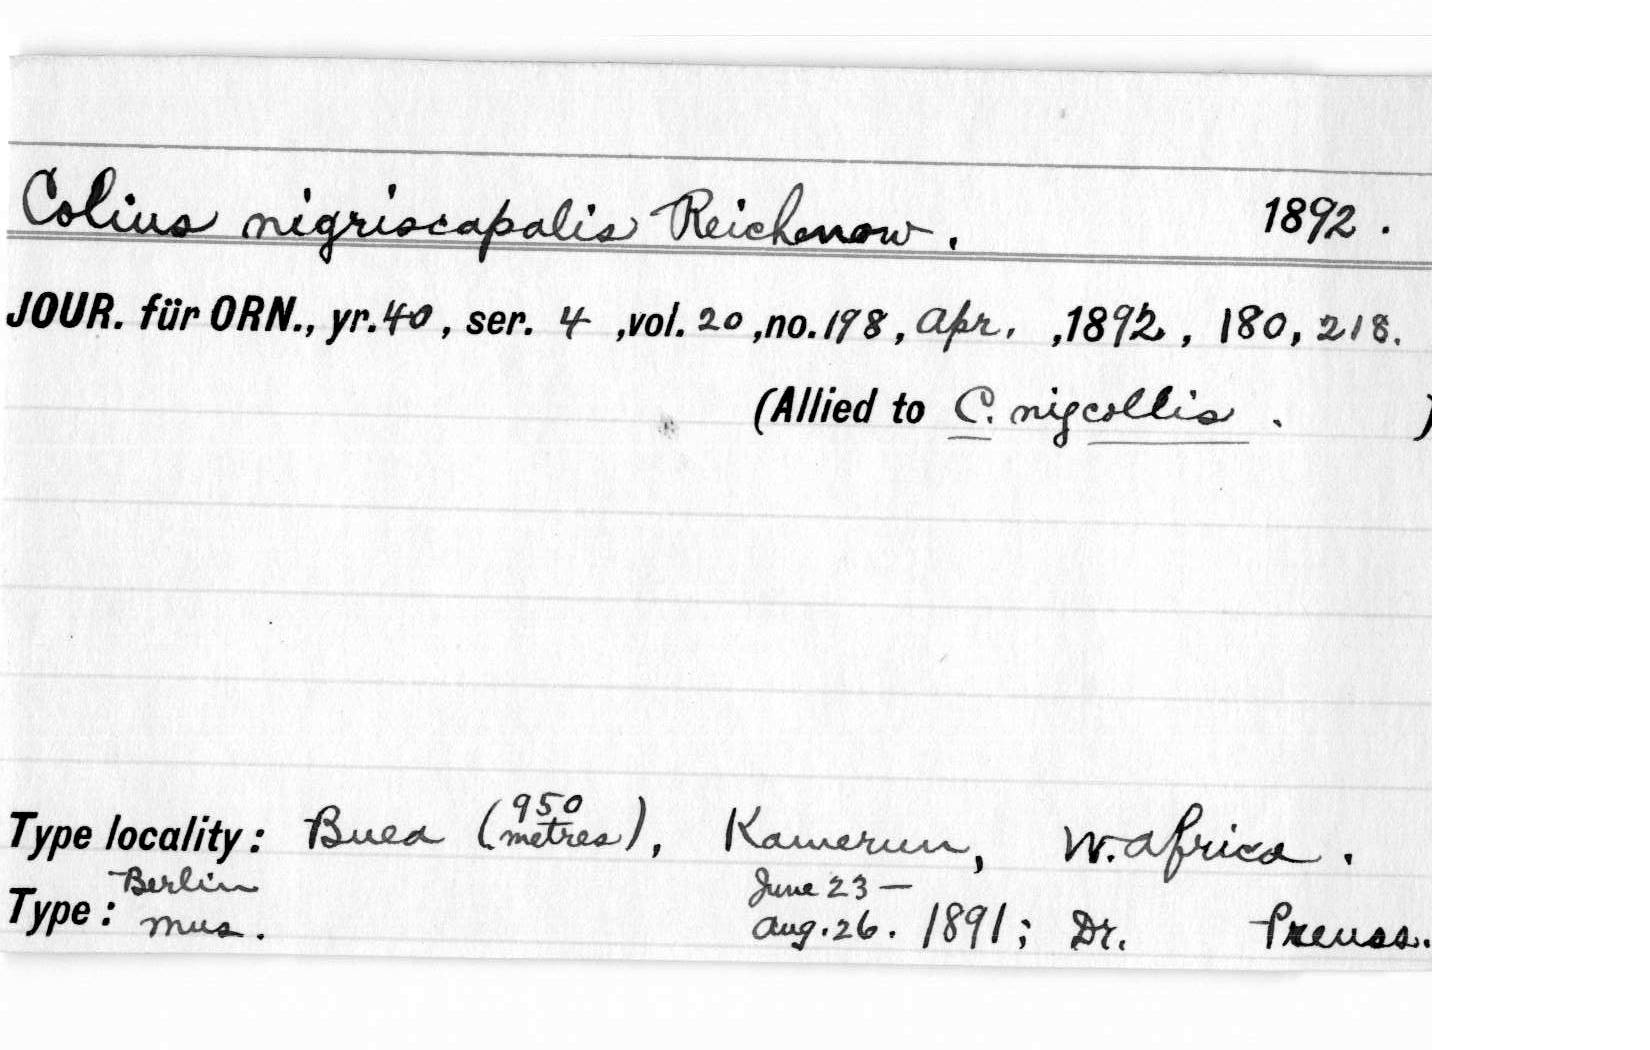 Colius nigriscapalis Reichenow. 1892.
JOUR. für ORN., yr. 40, ser. 4, vol. 20, no. 198, Apr., 1892, 180, 218.
(Allied to C. nigcollis. )
Type locality: Buea (950 metres), Kamerun, W. Africa.
Type: Berlin Mus. June 23 — Aug. 26. 1891; Dr. Preuss.